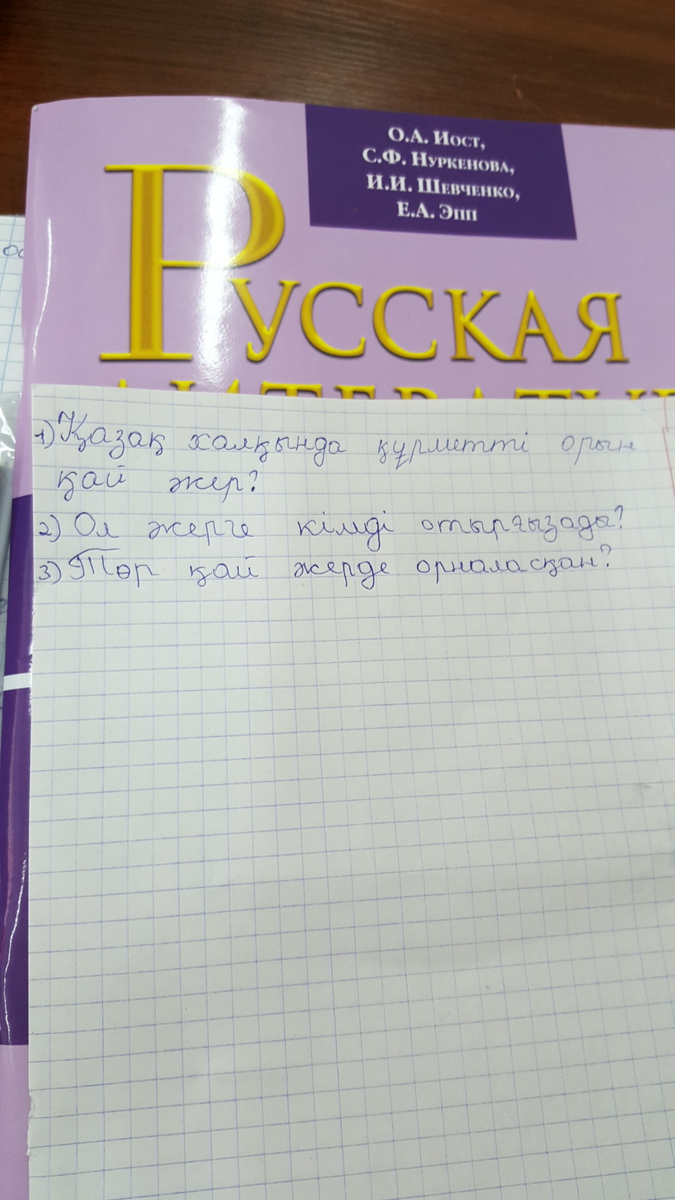 О.А. Иост,
С.Ф. Нуркенова,
И.И. Шевченко,
Е.А. Эпп
Русская
1) Қазақ халқында құрметті орын
қай жер?
2) Ол жерге кімді отырғызады?
3) Төр қай жерде орналасқан?